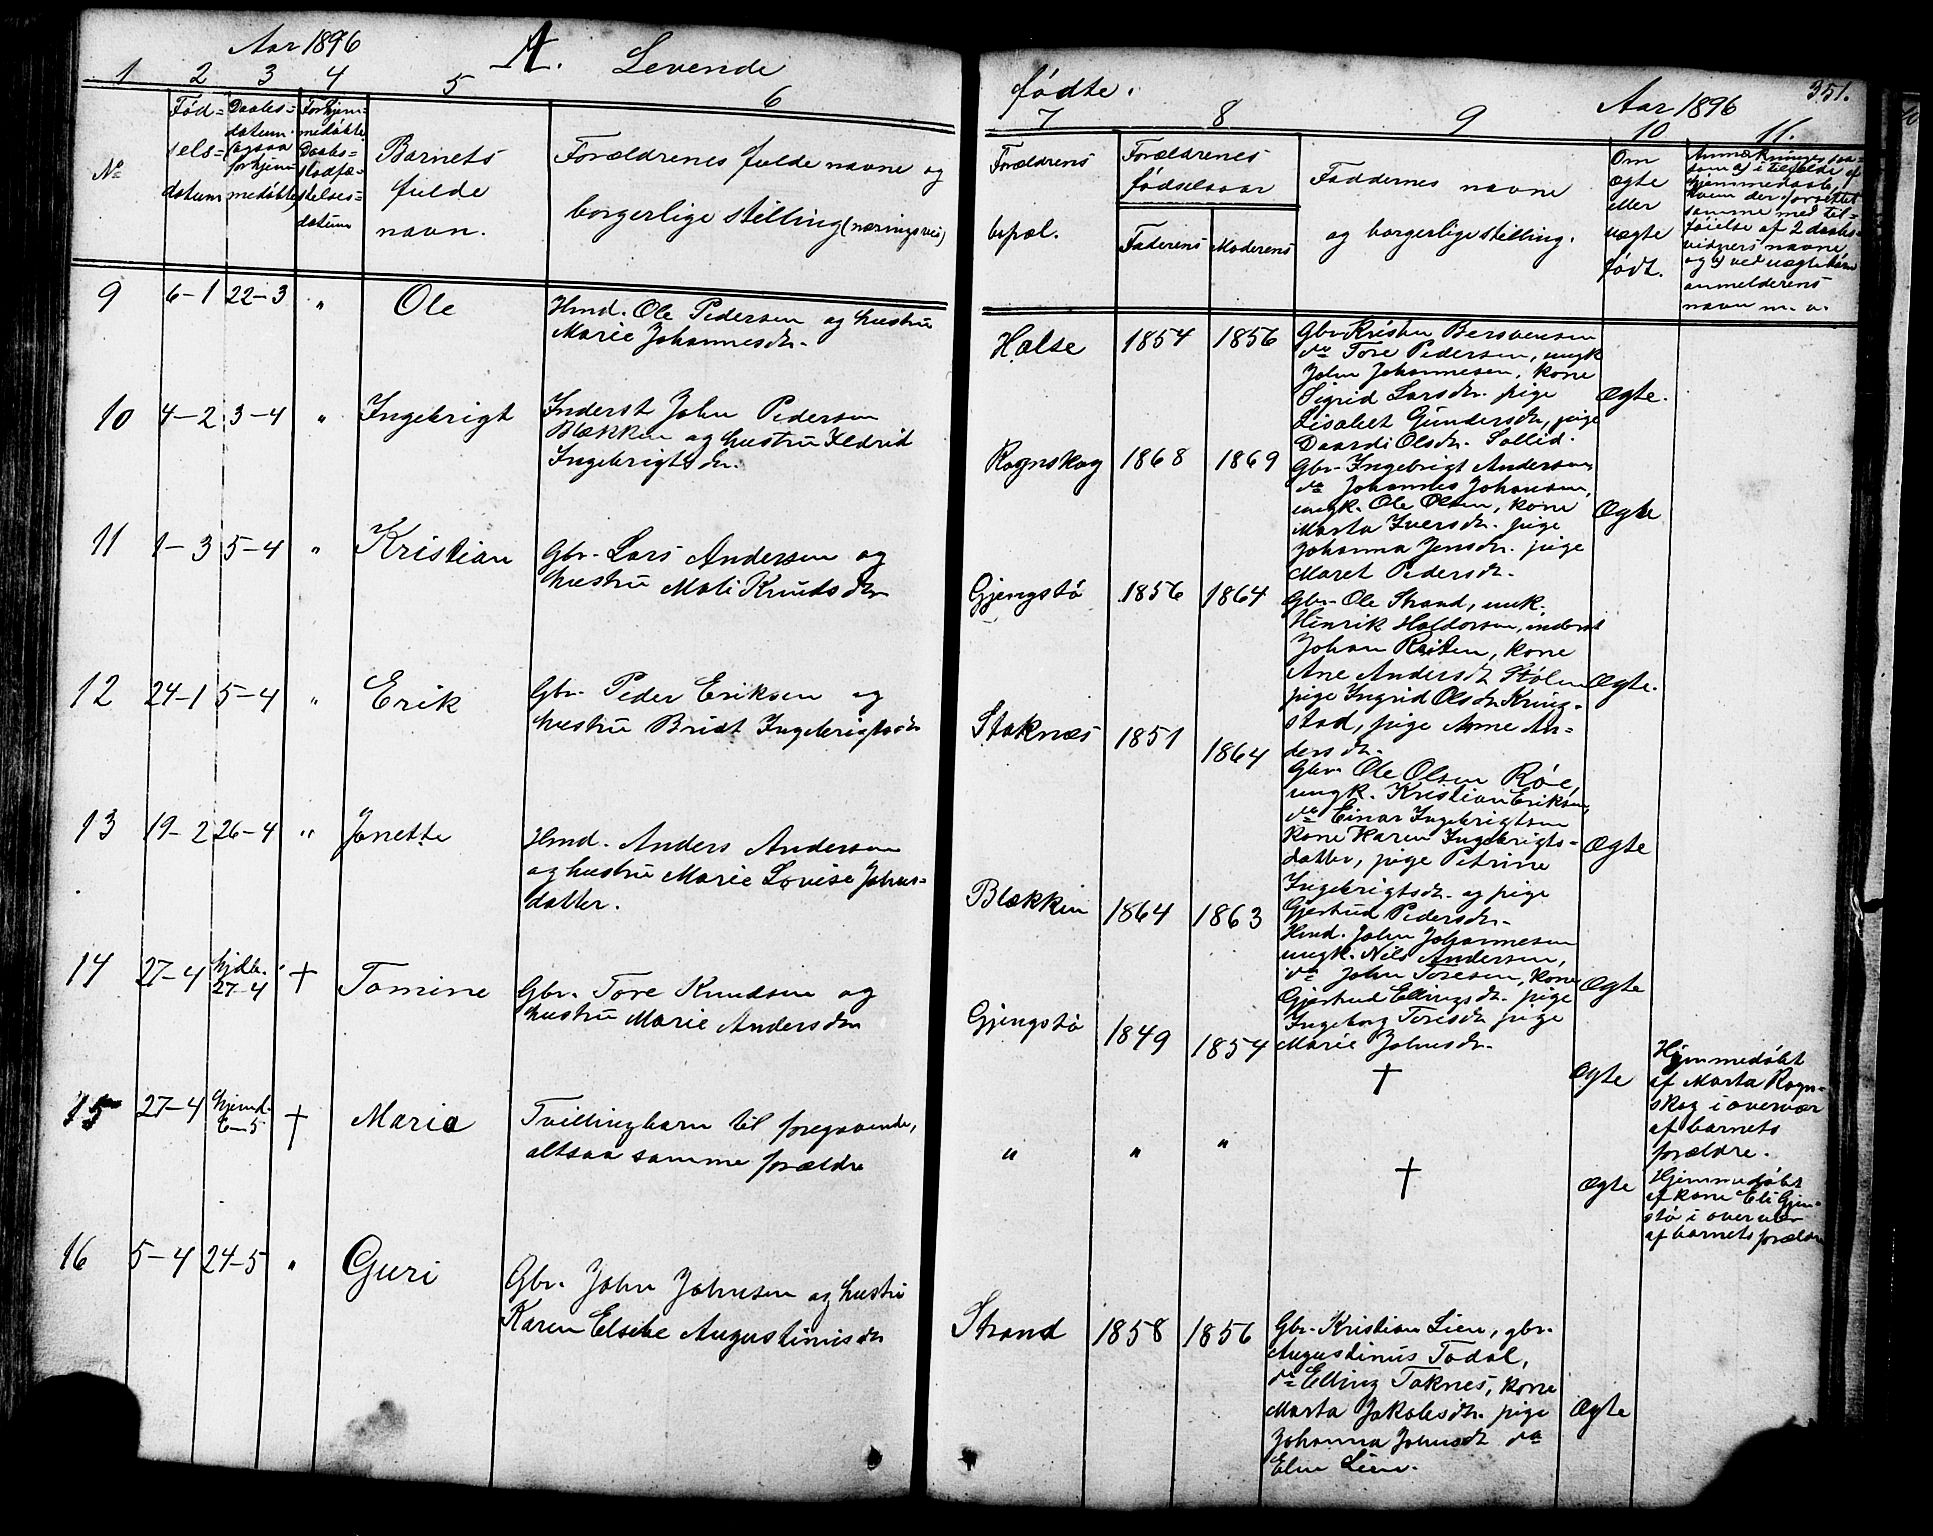 Aar 1896
A. Levende
1 2 3 4 5 6
№
Fød-
sels-
datum
Daabs-
datum
(ogsaa
for hjem
medøbte)
For hjem-
medøbte
Daabs-
stadfæ-
stelses-
datum
Barnets
fulde
navn.
Forældrenes fulde navne og
borgerlige stilling (næringsvei)
9 6–1 22–3 " Ole
Hmd. Ole Pedersen og hustru
Marie Johannesdr.
10 4–2 3–4 " Ingebrigt
Inderst John Pedersen
Blækken og hustru Ildrid
Ingebrigtsdr.
11 1–3 5–4 " Kristian
Gbr. Lars Andersen og
hustru Mali Knudsdr
12 24–1 5–4 " Erik
Gbr. Peder Eriksen og
hustru Bridt Ingebrigtsdr
13 19–2 26–4 " Jonette
Hmd. Anders Andersen
og hustru Marie Lovise Johns-
datter.
14 27–4 hjdbt. 27–4 † Tomine
Gbr. Tore Knudsen og
hustru Marie Andersdr
15 27–4 hjemd. 6–5 † Maria
Tvillingbarn til foregaaende,
altsaa samme forældre
16 5–4 24–5 " Guri
Gbr. John Johnsen og hustru
Karen Elsebe Augustinusdr
fødte.
Aar 1896
351.
7 8 9 10 11.
Forældrenes
bopæl.
Forældrenes
fødselsaar
Faderens Moderens
Faddernes navne
og borgerlige stilling.
Om
ægte
eller
uægte
født.
Anmærkninger saa-
som a) i tilfælde af
hjemmedaab,
hvem der forrettet
samme med til-
føielse af 2 daabs-
vidners navne
og b) ved uægte børn
anmelderens
navn m. v.
Halse 1854 1856
Gbr. Kristen Bersvensen
do Tore Pedersen, ungk
John Johannesen, kone
Sigrid Larsdr. pige
Lisabet Gundersdr, pige
Daardi Olsdr. Sollid.
Ægte.
Rognskog 1868 1869
Gbr. Ingebrigt Andersen,
do Johannes Johansen,
ungk. Ole Olsen, kone
Marta Iversdr. pige
Johanna Jensdr. pige
Maret Pedersdr.
Ægte
Gjengstø 1856 1864
Gbr. Ole Strand, unk.
Henrik Haldorsen, inderst
Johan Reiten, kone
Ane Andersdr Stølen
pige Ingrid Olsdr Kring-
stad, pige Anne An-
dersdr.
Ægte.
Stoknæs 1851 1864
Gbr. Ole Olsen Røe,
ungk. Kristian Eriksen,
do Einar Ingebrigtsen
Kone Karen Ingebrigts-
datter, pige Petrine
Ingebrigtsdr. og pige
Gjertrud Pedersdr.
Ægte
Blækken 1864 1863
Hmd. John Johannesen
ungk. Nils Andersen,
do John Toresen, kone
Gjertrud Ellingsdr. pige
Ingeborg Toresdr pige
Marie Johnsdr.
Ægte
Gjengstø 1849 1854
†
Ægte
Hjemmedøbt
af Marta Rogn-
skog i overvær
af barnets
forældre.
" " "
†
Ægte
Hjemmedøbt
af kone Eli Gjen-
stø i overvær
af barnets forældre
Strand 1858 1856
Gbr. Kristian Lien, gbr.
Augustinus Todal,
do Elling Taknes, kone
Marta Jakobsdr. pige
Johanna Johnsdr do
Elen Lien.
Ægte